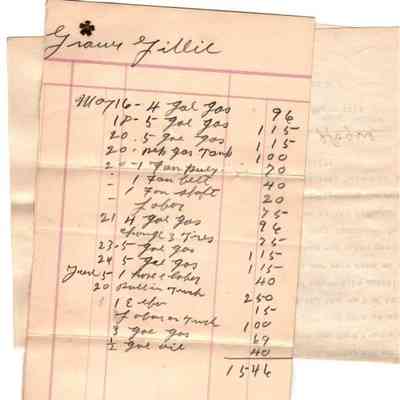 May 16 - 4 gal gas 96
18 - 5 gal gas 115
20 - 5 gal gas 115
20 - gas Tank 100
20 - 1 Fan 70
" 1 Fan belt 40
" 1 Fan shaft 20
" Labor 75
21 4 gal gas 96
3 Tires 75
23 - 5 gal gas 115
24 5 gal gas 115
June 5 1 hose & labor 40
20 Pull in Truck 250
1 15
Labor on Truck 100
3 gal gas 69
1/2 gal oil 40
1546